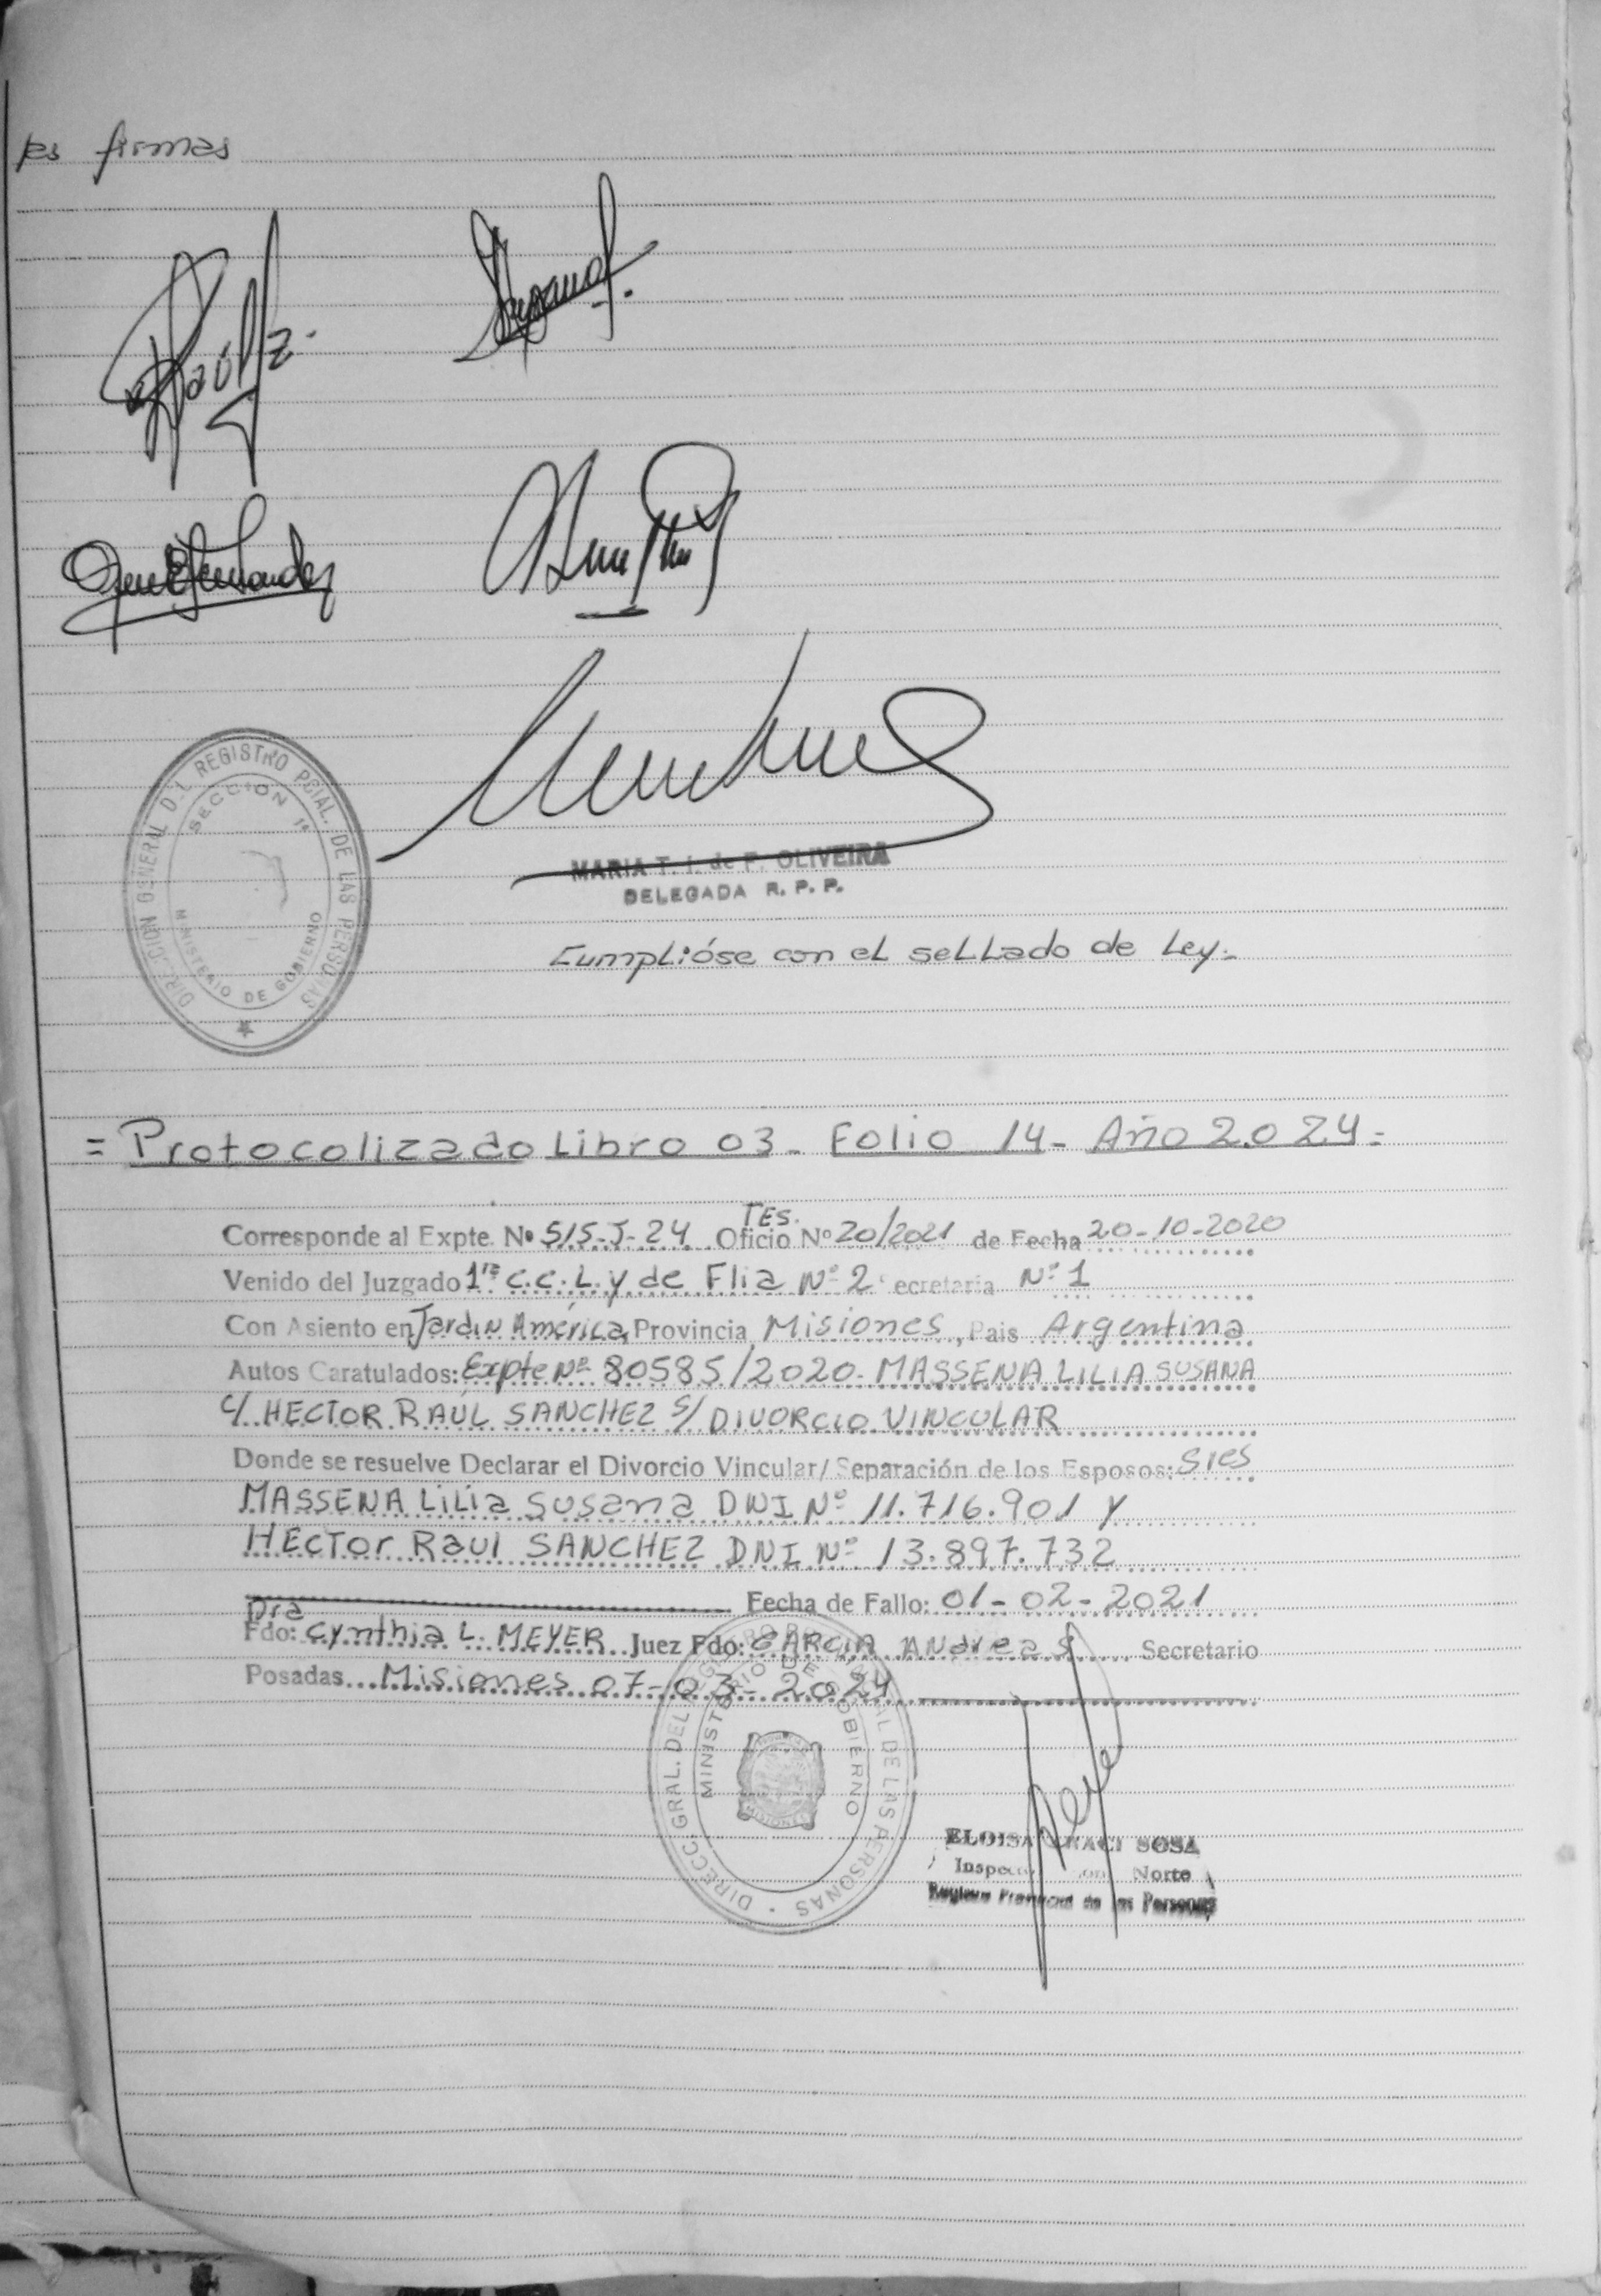 les firmas
DIRECCION GENERAL D.L REGISTRO PCIAL. DE LAS PERSONAS
SECCION 1ª
MINISTERIO DE GOBIERNO
MARIA T. I. de F. OLIVEIRA
DELEGADA R. P. P.
Cumplióse con el sellado de Ley.-
= Protocolizado Libro 03- Folio 14- Año 2.024=
TES.
Corresponde al Expte. Nº 515-J-24 Oficio Nº 20/2021 de Fecha 20-10-2020
Venido del Juzgado 1ra C.C.L. y de Flia Nº 2 Secretaria Nº 1
Con Asiento en Jardin América, Provincia Misiones, Pais Argentina
Autos Caratulados: Expte Nº 80585/2020- MASSENA LILIA SUSANA
C/ HECTOR RAÚL SANCHEZ S/ DIVORCIO VINCULAR
Donde se resuelve Declarar el Divorcio Vincular/ Separación de los Esposos: sres
MASSENA LILIA SUSANA DNI Nº 11.716.901 Y
HECTOR RAUL SANCHEZ DNI Nº 13.897.732
Fecha de Fallo: 01-02-2021
Dra
Fdo: Cynthia L. MEYER Juez Fdo: GARCIA Andrea S. Secretario
Posadas Misiones 07-03-2024
DIRECC. GRAL. DEL REGISTRO PROVINCIAL DE LAS PERSONAS
MINISTERIO DE GOBIERNO
ELOISA SOSA
Norte
Registro Provincial de las Personas